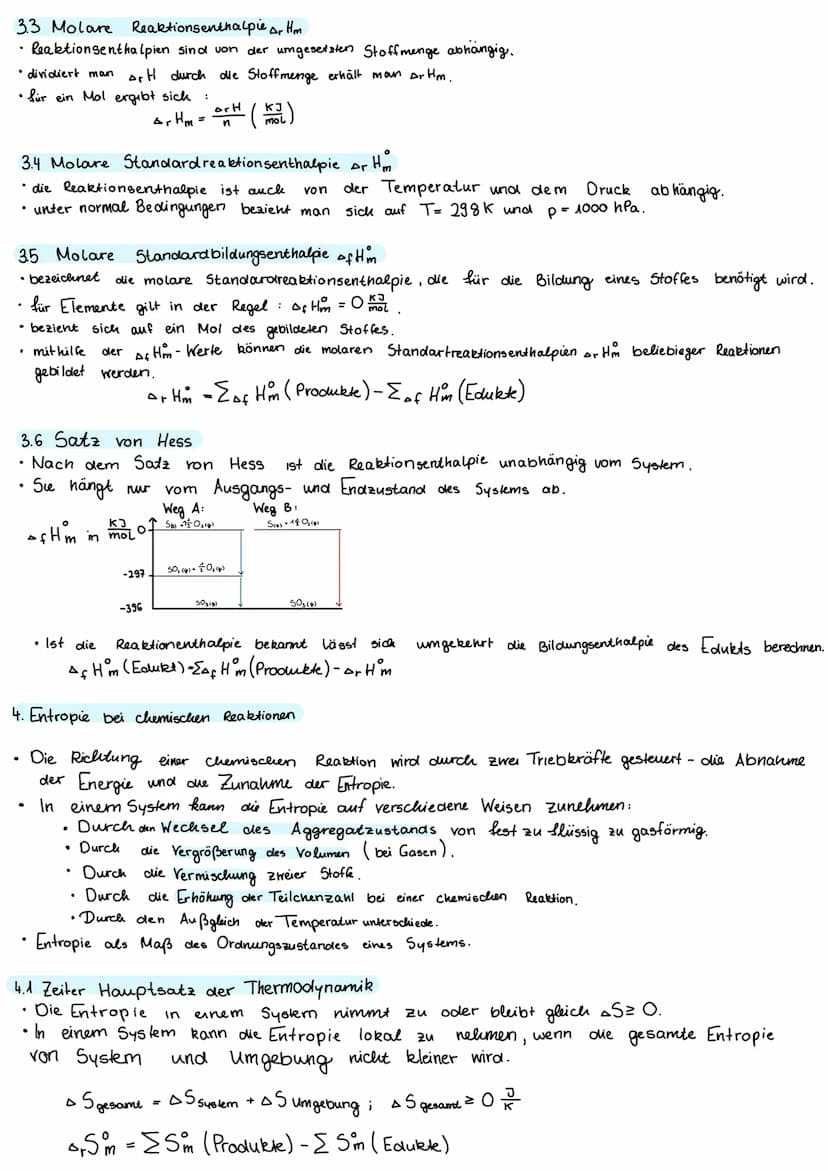 3.3 Molare Reaktionsenthalpie ΔrHm
• Reaktionsenthalpien sind von der umgesetzten Stoffmenge abhängig.
• dividiert man ΔrH durch die Stoffmenge erhält man ΔrHm.
• für ein Mol ergibt sich :
ΔrHm = ΔrH/n (KJ/mol)
3.4 Molare Standardreaktionsenthalpie ΔrH°m
• die Reaktionsenthalpie ist auch von der Temperatur und dem Druck abhängig.
• unter normal Bedingungen bezieht man sich auf T= 298K und p = 1000 hPa.
3.5 Molare Standardbildungsenthalpie ΔfH°m
• bezeichnet die molare Standardreaktionsenthalpie, die für die Bildung eines Stoffes benötigt wird.
• für Elemente gilt in der Regel : ΔfH°m = 0 KJ/mol.
• bezieht sich auf ein Mol des gebildeten Stoffes.
• mithilfe der ΔfH°m-Werte können die molaren Standartreaktionsenthalpien ΔrH°m beliebieger Reaktionen
gebildet werden.
ΔrH°m = ΣΔfH°m (Produkte) - ΣΔfH°m (Edukte)
3.6 Satz von Hess
• Nach dem Satz von Hess ist die Reaktionsenthalpie unabhängig vom System.
• Sie hängt nur vom Ausgangs- und Endzustand des Systems ab.
Weg A: Weg B:
ΔfH°m in KJ/mol 0
-297
-396 SO3(g) SO3(g)
• Ist die Reaktionenthalpie bekannt lässt sich umgekehrt die Bildungsenthalpie des Edukts berechnen.
ΔfH°m (Edukt) = ΣΔfH°m (Produkte) - ΔrH°m
4. Entropie bei chemischen Reaktionen
• Die Richtung einer chemischen Reaktion wird durch zwei Triebkräfte gesteuert - die Abnahme
der Energie und die Zunahme der Entropie.
• In einem System kann die Entropie auf verschiedene Weisen zunehmen:
• Durch den Wechsel des Aggregatzustands von fest zu flüssig zu gasförmig.
• Durch die Vergrößerung des Volumen (bei Gasen).
• Durch die Vermischung zweier Stoffe.
• Durch die Erhöhung der Teilchenzahl bei einer chemischen Reaktion.
• Durch den Außgleich der Temperatur unterschiede.
• Entropie als Maß des Ordnungszustandes eines Systems.
4.1 Zeiter Hauptsatz der Thermodynamik
• Die Entropie in einem System nimmt zu oder bleibt gleich ΔS≥ 0.
• In einem System kann die Entropie lokal zu nehmen, wenn die gesamte Entropie
von System und Umgebung nicht kleiner wird.
ΔSgesamt = ΔSSystem + ΔSUmgebung ; ΔSgesamt ≥ 0 J/K
ΔrS°m = ΣS°m (Produkte) - ΣS°m (Edukte)